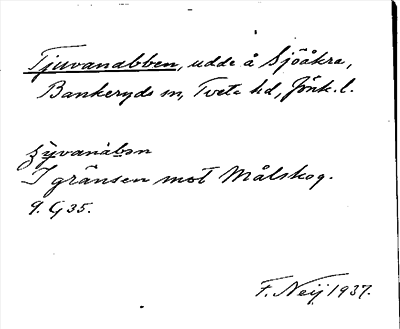 Tjuvanabben, udde å Sjöåkra,
Bankeryds sn, Tveta hd, Jönk. l.
I gränsen mot Målskog.
9. G 35.
F. Neij 1937.